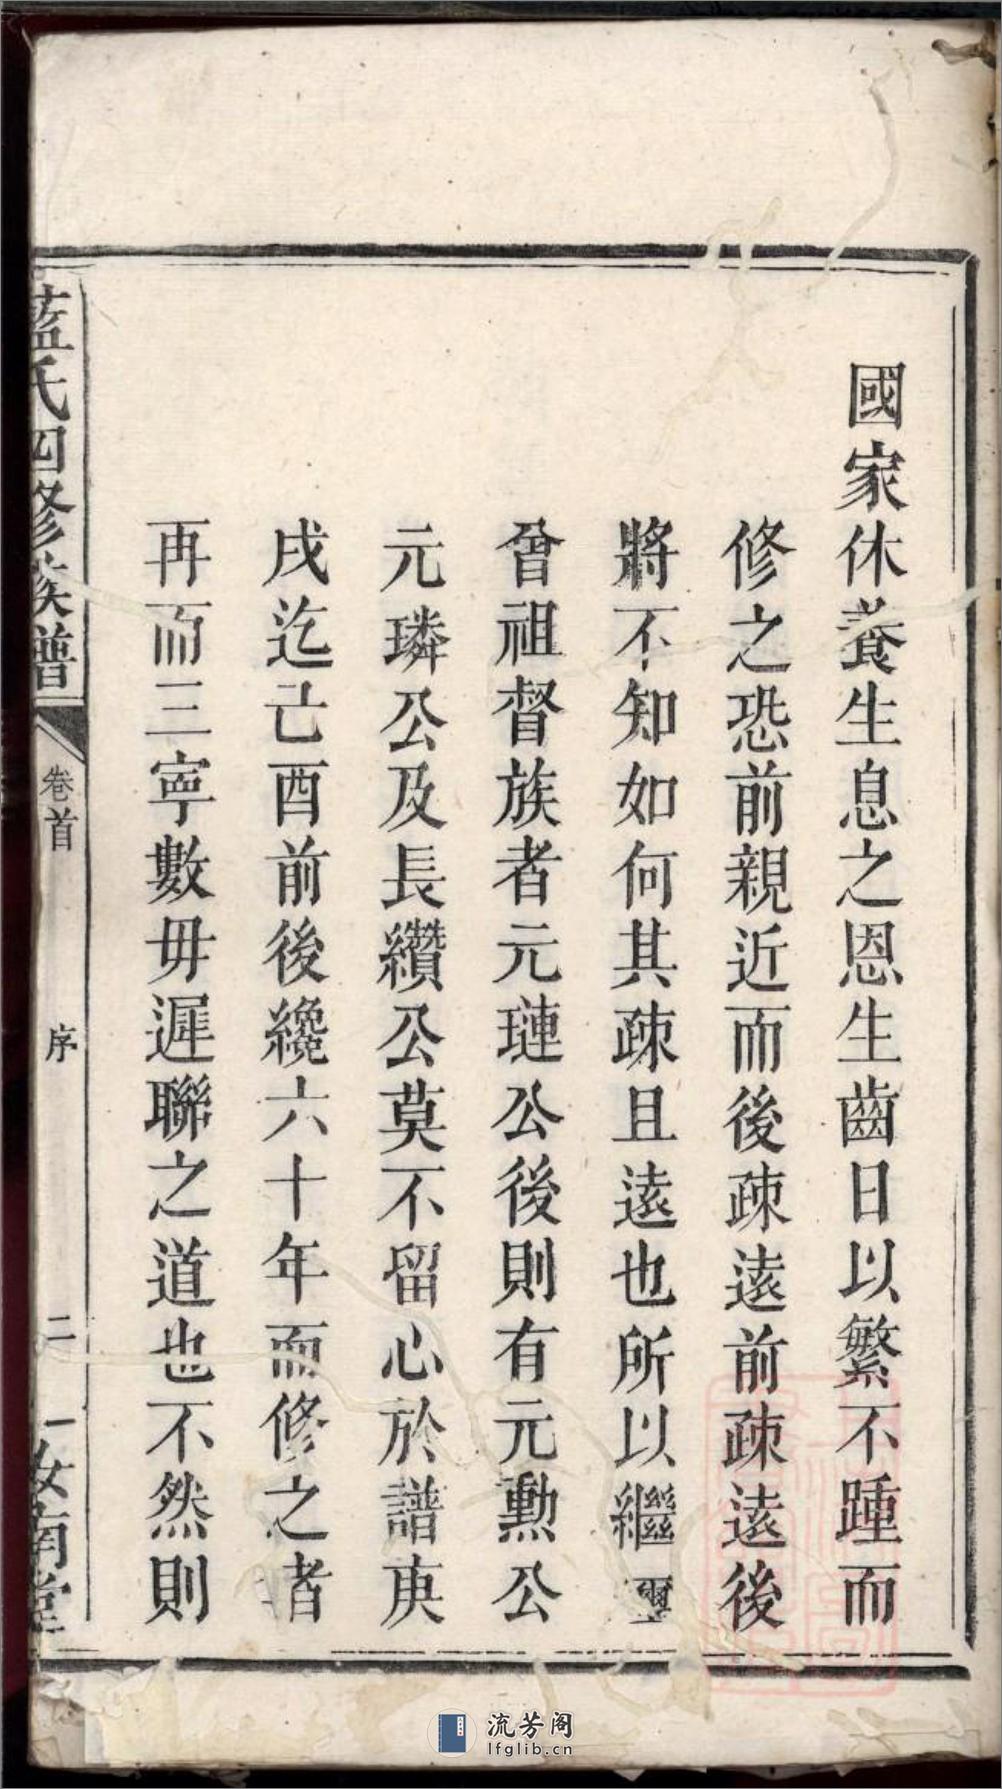 國家休養生息之恩生齒日以繁不踵而
修之恐前親近而後疎遠前疎遠後
將不知如何其疎且遠也所以繼
曾祖督族者元璉公後則有元勳公
元璘公及長纘公莫不留心於譜庚
戌迄己酉前後纔六十年而修之者
再而三寧數毋遲聯之道也不然則
藍氏四修族譜
卷首
序
二
汝南堂
流芳阁
lfglib.cn